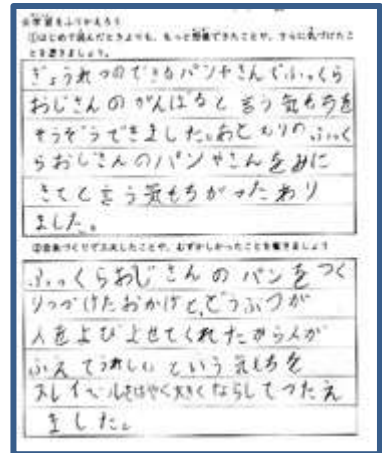 ☆学習をふりかえろう
①はじめて読んだときよりも、もっと想像できたことや、さらに気づけたこ
とを書きましょう。
ぎょうれつのできるパンやさんでふっくら
おじさんのがんばると言う気もちを
そうぞうできました。あともりのふっく
らおじさんのパンやさんをみに
きてと言う気もちがつたわり
ました。
②音楽づくりで工夫したことや、むずかしかったことを書きましょう
ふっくらおじさんのパンをつく
りつづけたおかげと、どうぶつが
人をよびよせてくれたから人が
ふえてうれしいという気もちを
スレイベルをはやく大きくならしてつたえ
ました。